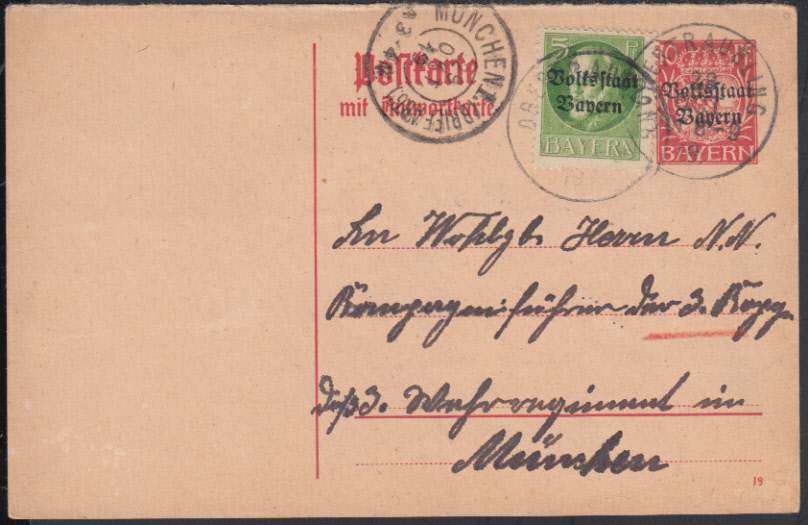 Postkarte
mit Antwortkarte
MÜNCHEN
5 Pf
Volksstaat
Bayern
BAYERN
10 Pf
Volksstaat
Bayern
BAYERN
OBERTRAUBLING
8-9
An Wohlgb. Herrn N.N.
Kompagnieführer der 3. Kopg.
des 3. Wehrregiment in
München
19